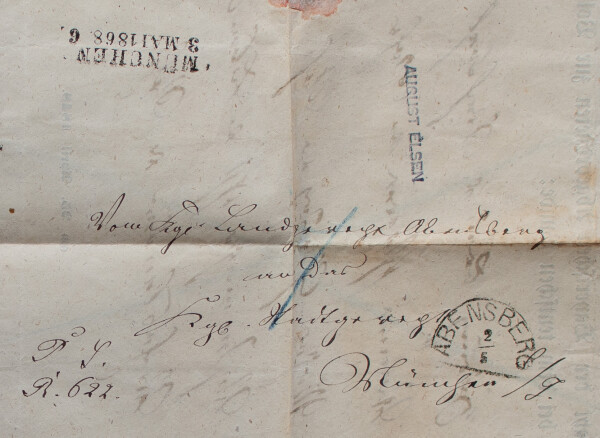 MÜNCHEN
3 MAI 1868 6
AUGUST ELSEN
Vom Kgl. Landgericht Abensberg
an das
Kgl. Stadtgericht
ABENSBERG
2
5
P. S.
R. 622.
München l/J.